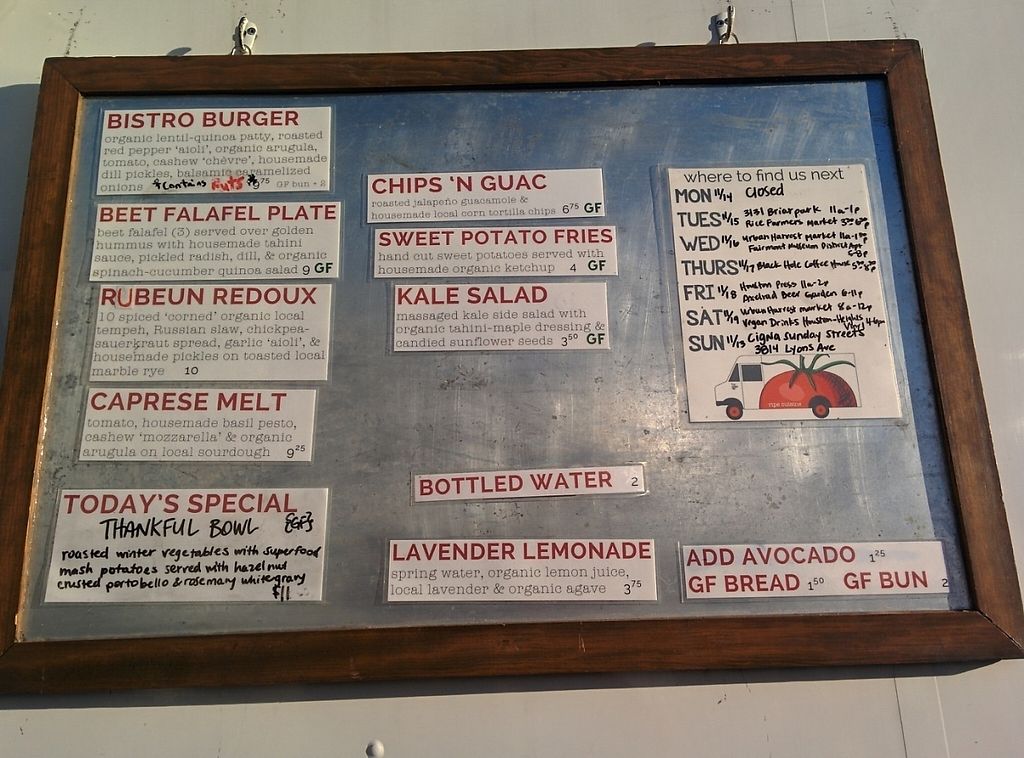 BISTRO BURGER
organic lentil-quinoa patty, roasted
red pepper 'aioli', organic arugula,
tomato, cashew 'chèvre', housemade
dill pickles, balsamic caramelized
onions *contains nuts* 9 75 GF bun + 2
BEET FALAFEL PLATE
beet falafel (3) served over golden
hummus with housemade tahini
sauce, pickled radish, dill, & organic
spinach-cucumber quinoa salad 9 GF
RUBEUN REDOUX
10 spiced 'corned' organic local
tempeh, Russian slaw, chickpea-
sauerkraut spread, garlic 'aioli', &
housemade pickles on toasted local
marble rye 10
CAPRESE MELT
tomato, housemade basil pesto,
cashew 'mozzarella' & organic
arugula on local sourdough 9 25
TODAY'S SPECIAL
THANKFUL BOWL {GF}
roasted winter vegetables with superfood
mash potatoes served with hazelnut
crusted portobello & rosemary white gravy
$11
CHIPS 'N GUAC
roasted jalapeño guacamole &
housemade local corn tortilla chips 6 75 GF
SWEET POTATO FRIES
hand cut sweet potatoes served with
housemade organic ketchup 4 GF
KALE SALAD
massaged kale side salad with
organic tahini-maple dressing &
candied sunflower seeds 3 50 GF
BOTTLED WATER 2
LAVENDER LEMONADE
spring water, organic lemon juice,
local lavender & organic agave 3 75
where to find us next
MON 11/14 closed
TUES 11/15 3131 Briarpark 11a-1p
Rice Farmers Market
WED 11/16 Urban Harvest Market
Fairmont Museum District Apt
5-8p
THURS 11/17 Black Hole Coffee House
FRI 11/18 Houston Press 11a-2p
Axelrad Beer Garden 6-11p
SAT 11/19 Urban Harvest market 8a-12p
Vegan Drinks Houston-Heights
4-6pm
SUN 11/13 Cigna Sunday Streets
3814 Lyons Ave
ripe cuisine
ADD AVOCADO 1 25
GF BREAD 1 50 GF BUN 2